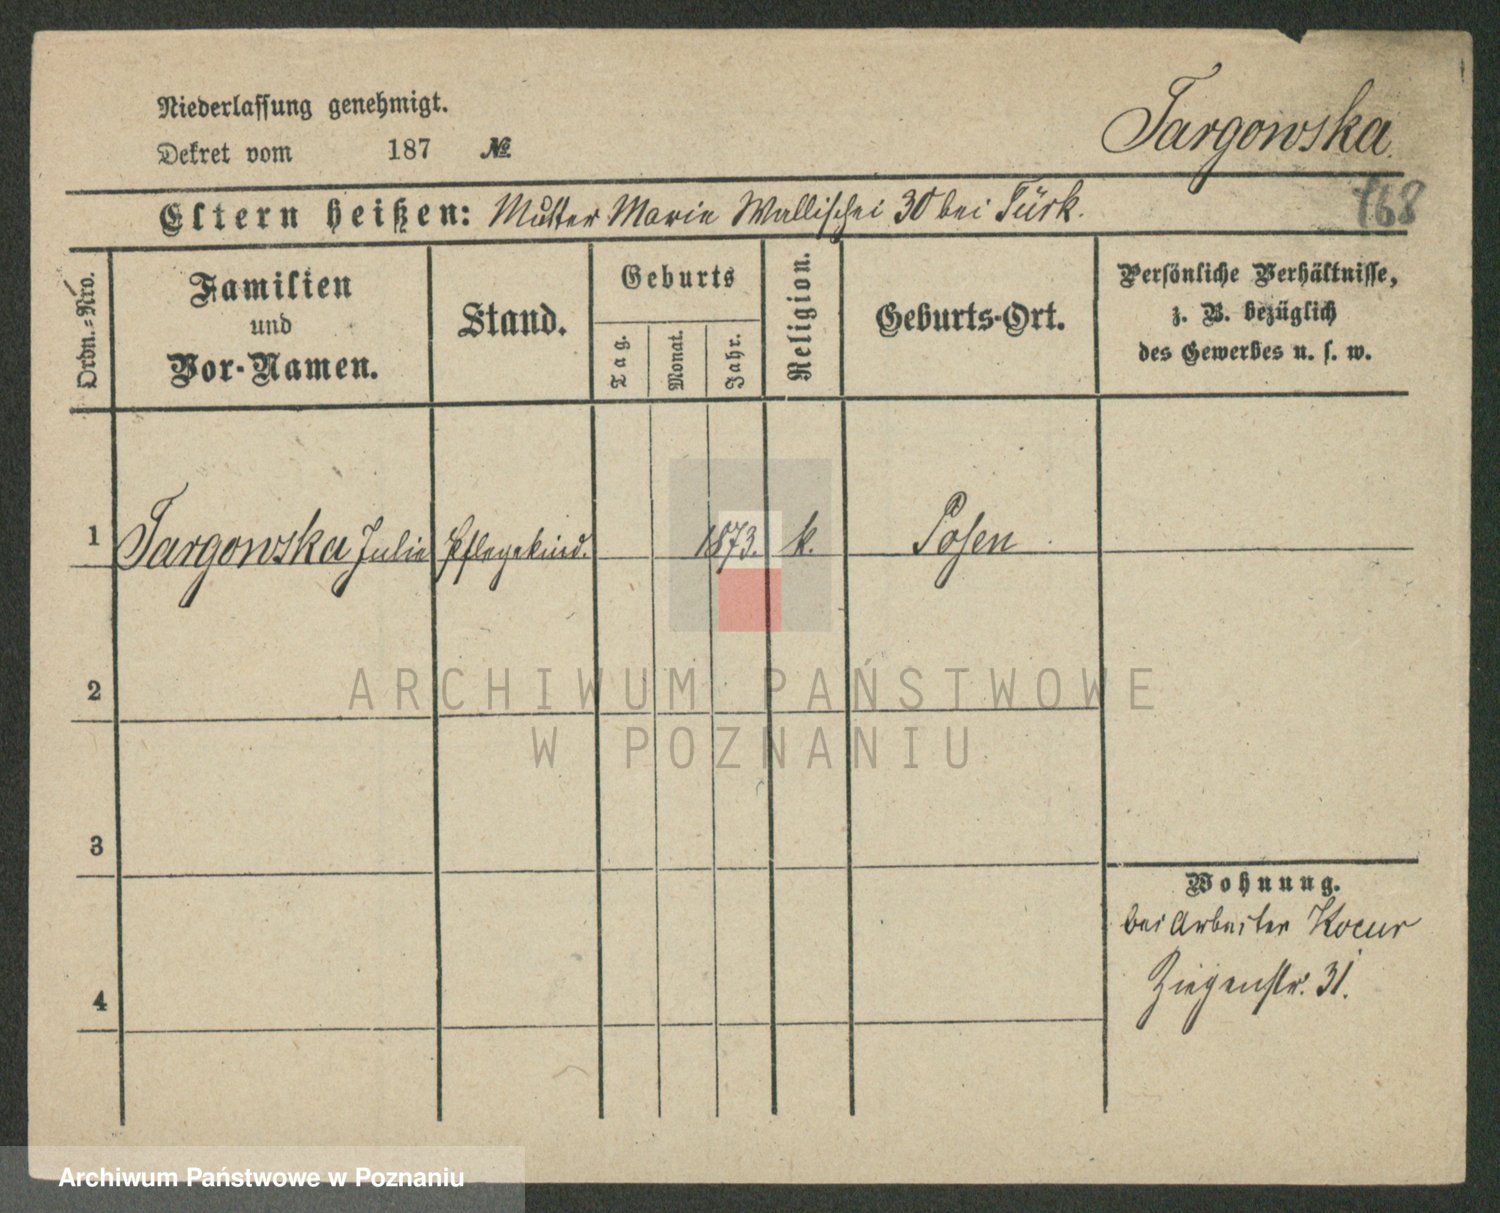 Niederlassung genehmigt.
Dekret vom 187 №
Targowska
168
Eltern heißen: Mutter Marie Wallischei 30 bei Türk.
Ordn.-Nro.
Familien
und
Vor-Namen.
Stand.
Geburts
Tag.
Monat.
Jahr.
Religion.
Geburts-Ort.
Persönliche Verhältnisse,
z. B. bezüglich
des Gewerbes u. s. w.
1 Targowska Julie Pflegekind. 1873. k. Posen
ARCHIWUM PAŃSTWOWE
W POZNANIU
2
3
4
Wohnung.
bei Arbeiter Kocur
Ziegenstr. 31.
Archiwum Państwowe w Poznaniu